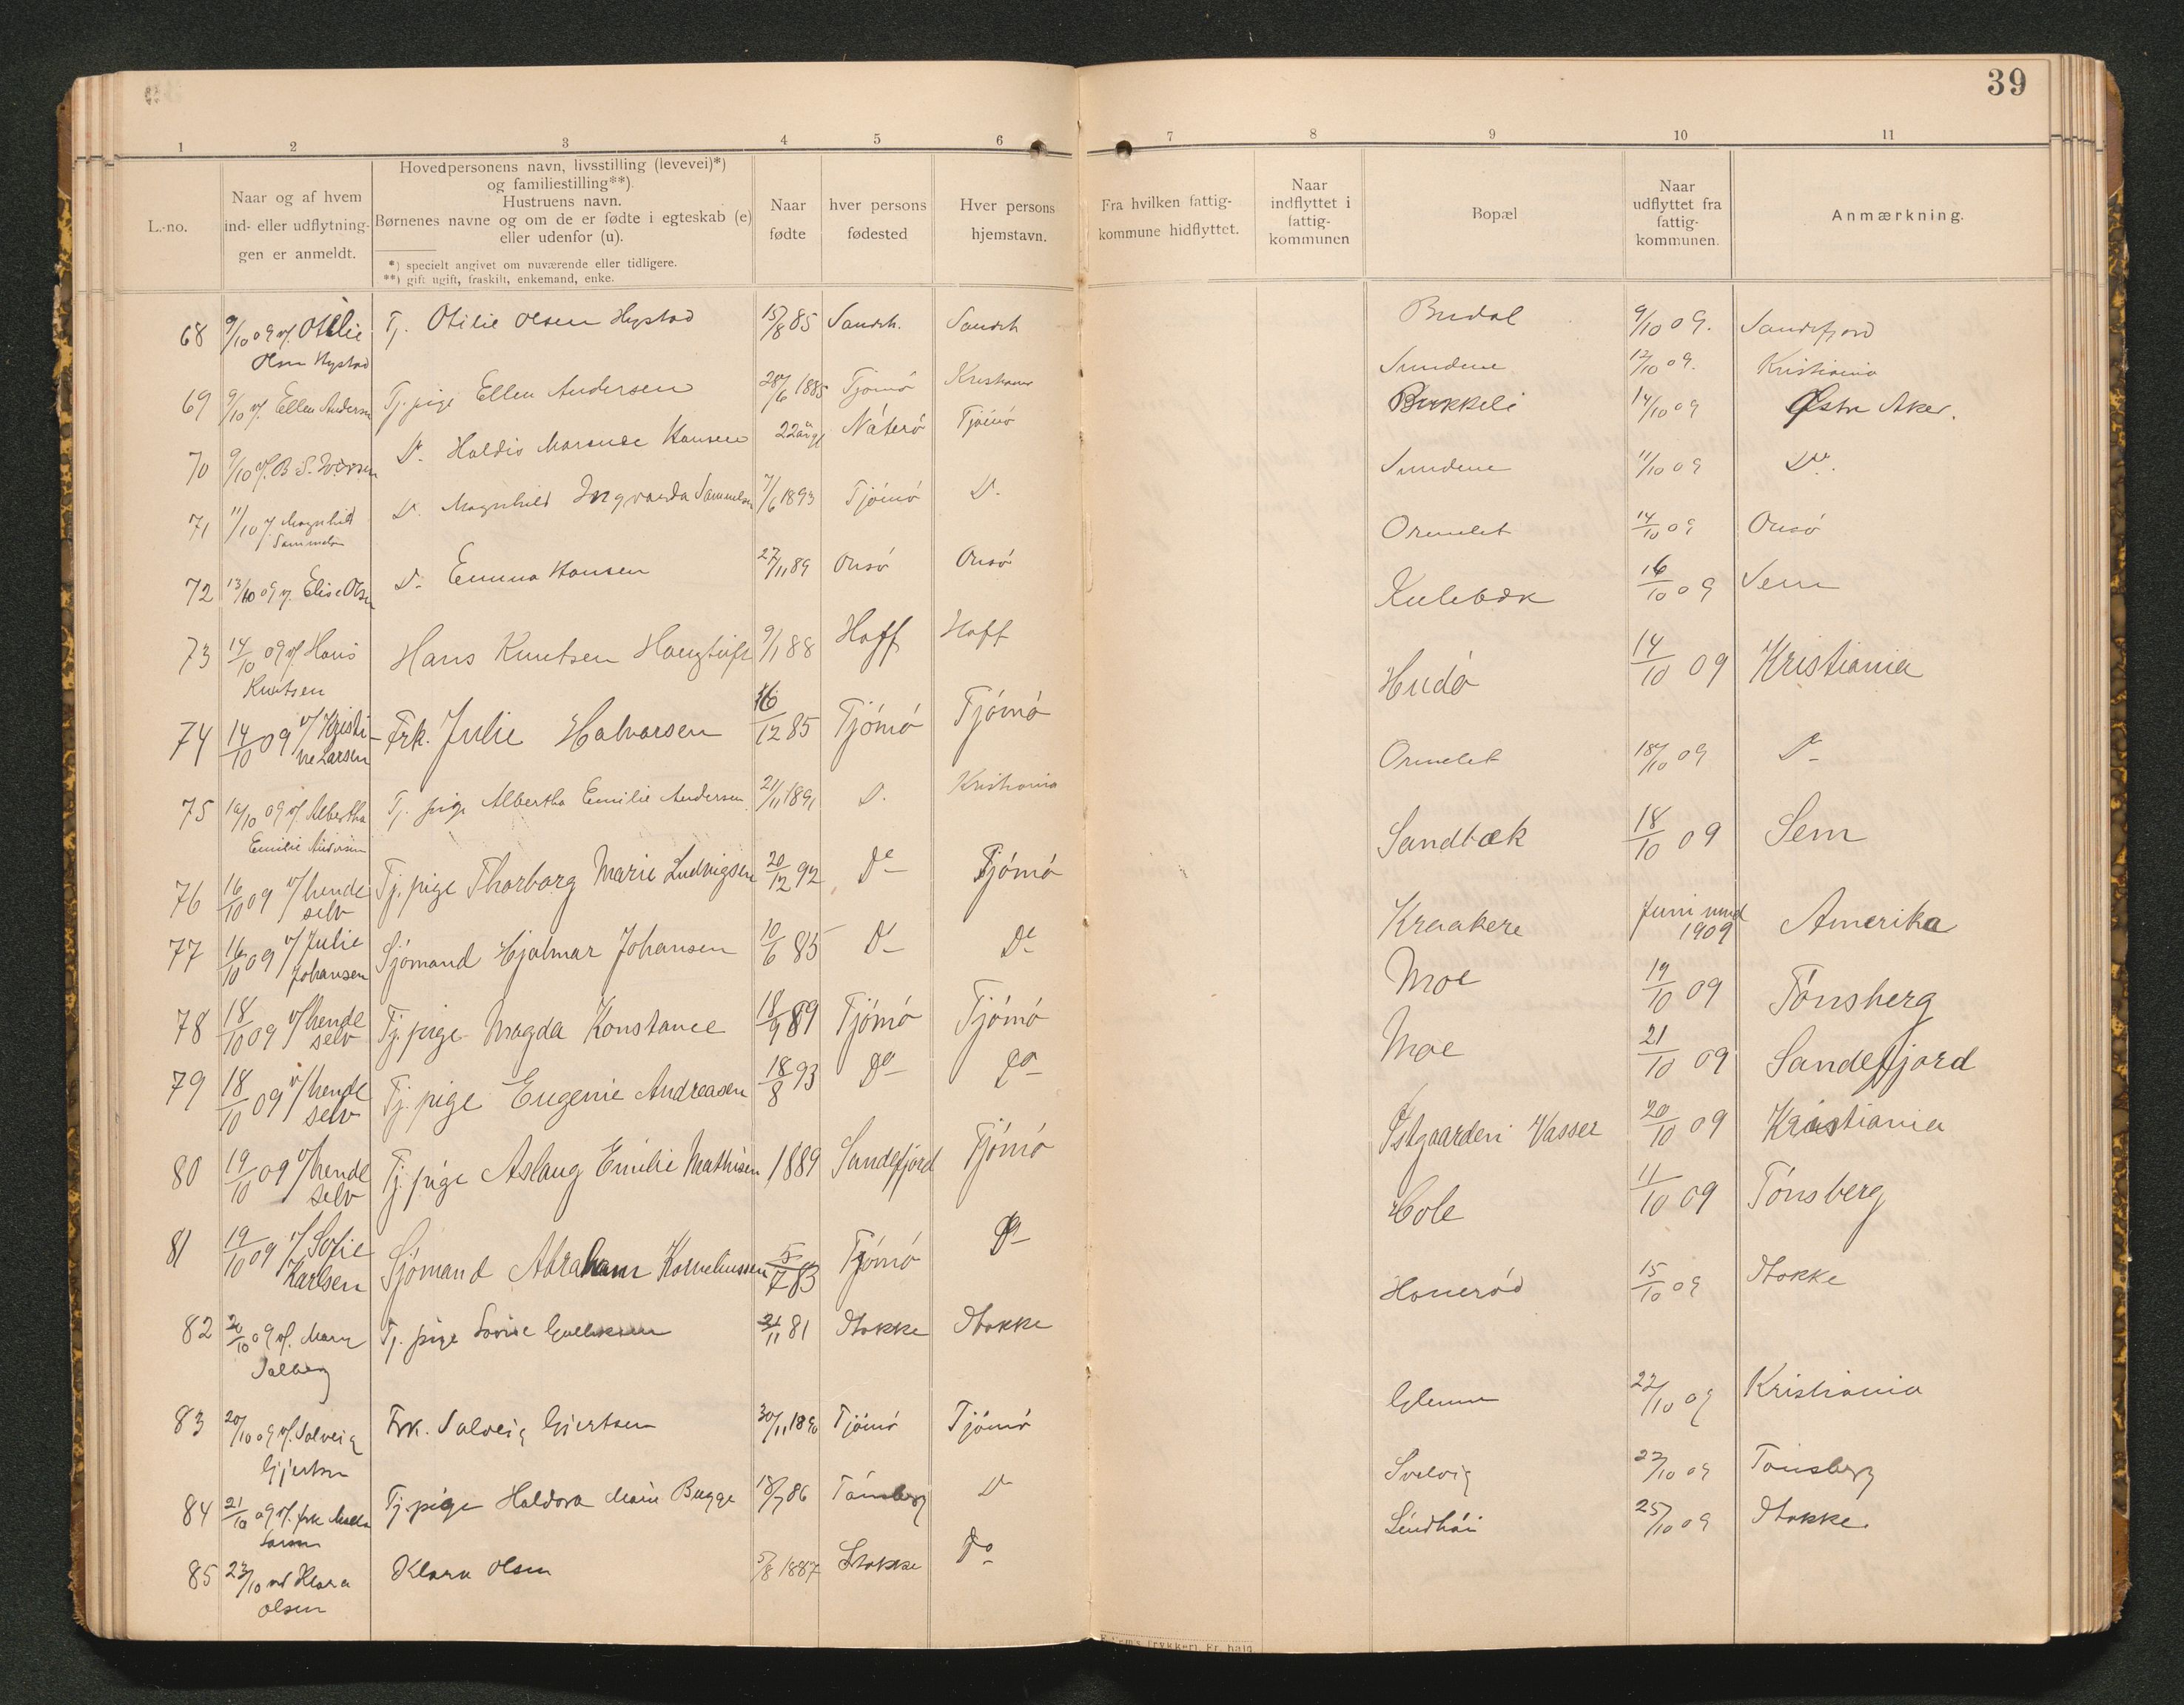 39
1 2 3 4 5 6 7 8 9 10 11
L.-no.
Naar og af hvem
ind- eller udflytning-
gen er anmeldt.
Hovedpersonens navn, livsstilling (levevei)*)
og familiestilling**).
Hustruens navn.
Børnenes navne og om de er fødte i egteskab (e)
eller udenfor (u).
*) specielt angivet om nuværende eller tidligere.
**) gift ugift, fraskilt, enkemand, enke.
Naar
fødte
hver persons
fødested
Hver persons
hjemstavn.
Fra hvilken fattig-
kommune hidflyttet.
Naar
indflyttet i
fattig-
kommunen
Bopæl
Naar
udflyttet fra
fattig-
kommunen.
Anmærkning.
68 9/10 09 v/. Otilie Tj. Otilie Olsen Hystad 15/8 85 Sandeh. Sandeh Budal 9/10 09. Sandefjord
Olsen Hystad
69 9/10 v/. Ellen Andersen Tj. pige Ellen Andersen 28/6 1885 Tjømø Kristiania Sundene 12/10 09. Kristiania
70 9/10 v/. B. S. Iversen Do. Haldis Marense Hansen 22 år gl Nøterø Tjømø Bukkeli 14/10 09 Østre Aker.
71 11/10 v/. Magnhild Do. Magnhild Ingvarda Samuelsen 7/6 1893 Tjømø Do. Sundene 11/10 09 Do.
Samuelsen
72 13/10 09 v/. Elise Olsen Do. Emma Hansen 27/11 89 Onsø Onsø Ormelet 14/10 09 Onsø
73 14/10 09 v/. Hans Hans Knutsen Haugtuft 9/1 88 Hoff Hoff Kulebæk 16/10 09 Sem
Knutsen
74 14/10 09 v/ Kristi- Frk. Julie Halvorsen 16/12 85 Tjømø Tjømø Hudø 14/10 09 Kristiania
ne Larsen
75 16/10 09 v/. Albertha Tj. pige Albertha Emilie Andersen 21/11 1891 Do. Kristiania Ormelet 18/10 09 Do
Emilie Andersen
76 16/10 09 v/ hende Tj. pige Thorborg Marie Ludvigsen 20/12 92 Do Tjømø Sandbæk 18/10 09 Sem
selv
77 16/10 09 v/ Julie Sjømand Hjalmar Johansen 10/6 85 Do Do Kraakere Juni md 1909 Amerika
Johansen
78 18/10 09 v/ hende Tj. pige Magda Konstance 18/9 89 Tjømø Tjømø Moe 19/10 09 Tønsberg
selv
79 18/10 09 v/ hende Tj. pige Eugenie Andreasen 18/8 93 Do Do Moe 21/10 09 Sandefjord
selv
80 19/10 09 v/ hende Tj. pige Aslaug Emilie Mathisen 1889 Sandefjord Tjømø Østgaarden Vasser 20/10 09 Kristiania
selv
81 19/10 09 v/ Sofie Sjømand Abraham Korneliussen 5/7 83 Tjømø Do Hole 11/10 09 Tønsberg
Karlsen
82 20/10 09 v/. Marg Tj. pige Lovise 21/11 81 Stokke Stokke Honerød 15/10 09 Stokke
Solberg
83 20/10 09 v/. Solveig Frk. Solveig Gjertsen 30/11 1890 Tjømø Tjømø Glenne 22/10 09 Kristiania
Gjertsen
84 21/10 09 v/. frk Tj. pige Haldora Marie Bugge 18/7 86 Tønsberg Do Solvig 23/10 09 Tønsberg
Larsen
85 23/10 ved Klara Klara Olsen 5/8 1887 Stokke Do Lindhøi 25/10 09 Stokke
Olsen